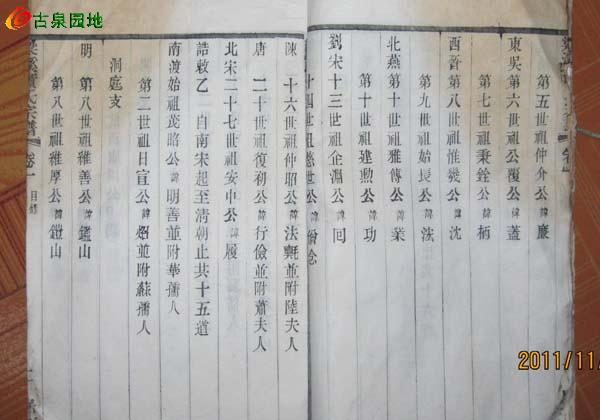 古泉园地
第五世祖仲介公諱廉
東吳
第六世祖公覆公諱蓋
第七世祖秉銓公諱柄
西晉
第八世祖惟幾公諱沈
第九世祖始長公諱泓
北燕
第十世祖雅傳公諱業
第十世祖建勲公諱功
劉宋
十三世祖企淵公諱回
十四世祖
公諱
陳
十六世祖仲昭公諱法氍並附陸夫人
唐
二十世祖復初公諱行儉並附蕭夫人
北宋
二十七世祖安中公諱履
誥敕
自南宋起至清朝止共十五道
南渡始祖茂略公諱明善並附華孺人
第二世祖日宣公諱炤並附蘇孺人
洞庭支
明
第八世祖維善公諱鑑山
第八世祖維厚公諱鎧山
氏宗譜
卷一
目錄
2011/11